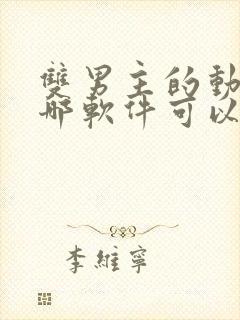 雙男主的動
哪軟件可以
李維寧